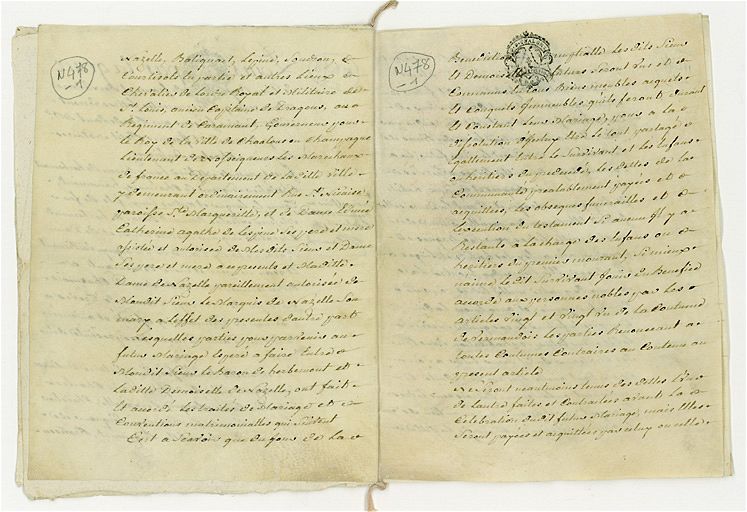 N 478
-1
Nazelle, Batignart, Leziné, Soudron, &
Courtisols en partie et autres Lieux &
Chevalier de l'ordre Royal et Militaire de
St. Louis, ancien Capitaine de Dragons, au
Regiment de Caramant, Gouverneur pour
le Roy de la Ville de Chaalons en Champagne
Lieutenant de Nosseigneurs Les Marechaux
de france au Departement de la ditte Ville
y demeurant ordinairement Rue St.
paroisse Ste. Marguerithe, et de Dame
Catherine agathe de ses pere et mere
assistée et autorisée de Mesdits Sieur et Dame
Ses pere et mere a ce presents et Maditte
Dame de Nazelle pareillement autorisée de
Mondit Sieur le Marquis de Nazelle Son
mary a l'effet des presentes d'autre part
Lesquelles parties pour parvenir au
futur Mariage espéré a faire Entre
Mondit Sieur le Baron de herbemont et
La ditte Demoiselle de Nazelle, ont fait
Et accordé Les traités de Mariage et
Conventions matrimonialles qui Suivent
C'est a Scavoir que du jour de La
N 478
-1
Benediction Les dits Sieur
Et Demoiselle futurs Seront Uns et
Communs En tous Biens meubles acquets
Et Conquets Immeubles qu'ils feront Durant
Et Constant Leur Mariage, pour a la
Dissolution d'Iceluy Etre Le tout partagé
Egallement Entre Le Survivant et Les Enfans
ou heritiers du predecedé, Les dettes de La
Communauté préalablement payées et
acquittées, les obseques funerailles et
Execution du testament Si aucun Il y a
Restants à la charge des Enfans ou
heritiers du premier mourant, Si mieux
n'aime Le dit Survivant Jouir du Benefice
accordé aux personnes nobles par Les
articles Vingt et Vingt un de La Coutume
de Vermandois Les parties Renonceant a
toutes Coutumes Contraires au Contenu au
present article
Ne Seront neantmoins tenus des dettes L'un
de Lautre faites et Contractées avant La
Celebration dudit futur Mariage, mais Elles
Seront payées et acquittées par celuy ou celle